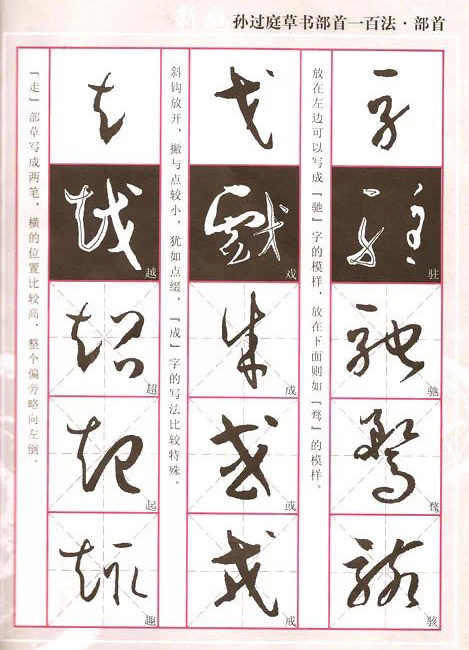 孙过庭草书部首一百法·部首
驻
驰
骛
骇
放在左边可以写成『驰』字的模样，放在下面则如『骛』的模样。
戈
戏
成
或
斜钩放开，撇与点较小，犹如点缀，『成』字的写法比较特殊。
走
越
超
起
趣
『走』部草写成两笔，横的位置比较高，整个偏旁略向左倒。